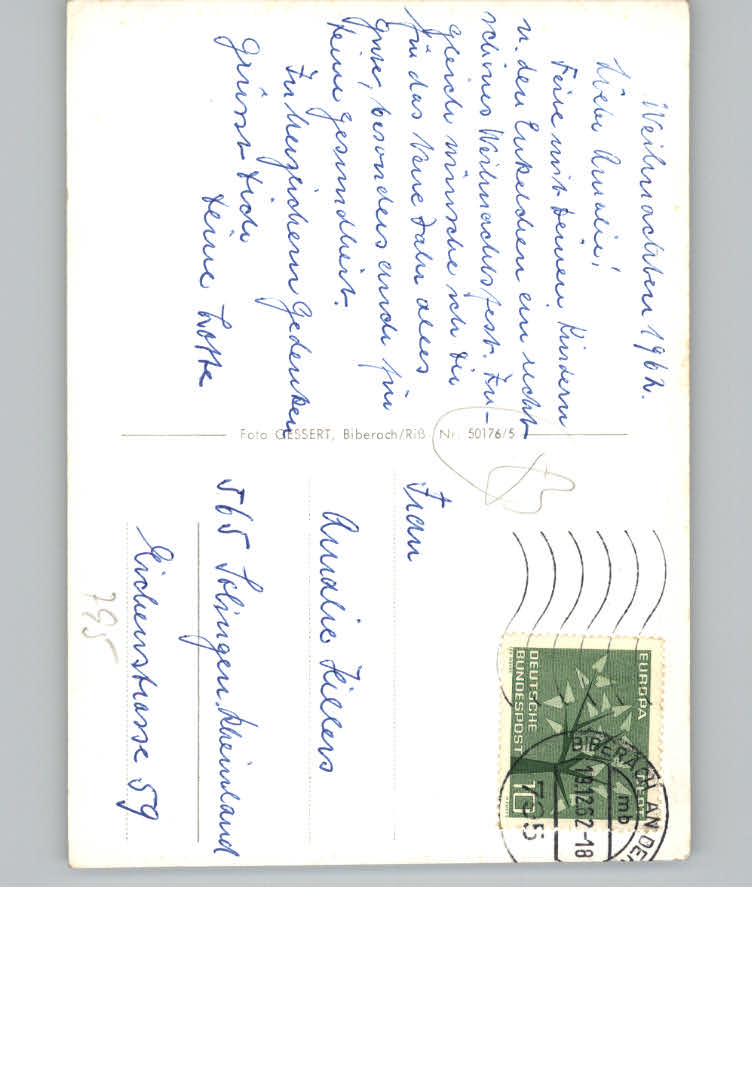 Weihnachten 1962.
Liebe Amalie!
Feire mit Deinen Kindern
u. den Enkelchen ein recht
schönes Weihnachtsfest. Zu-
gleich wünsche ich Dir
für das Neue Jahr alles
gute, besonders auch für
Deine Gesundheit.
In herzlichem Gedenken
grüsst Dich
Deine Lotte
Foto GESSERT, Biberach/Riß Nr. 50176/5
Frau
Amalie Hillers
565 Solingen. Rheinland
Eichenstrasse 59
795
EUROPA
DEUTSCHE
BUNDESPOST
10
BIBERACH AN DER
mb
19.12.62-18
795